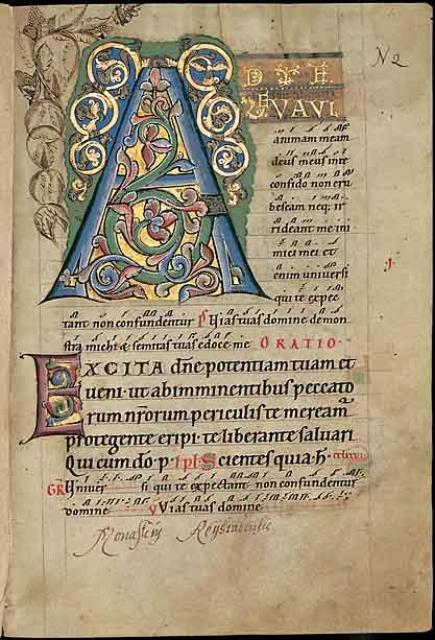 N 2
A D TE
LEVAVI
animam meam
deus meus in te
confido non eru
bescam neq; ir
rideant me ini
mici mei et
enim universi
qui te expec
tant non confundentur Ps Vias tuas domine demon
stra michi & semitas tuas edoce me ORATIO
EXCITA dne potentiam tuam et
veni ut ab imminentibus peccato
rum nrorum periculis te meream
protegente eripi te liberante salvari
Qui cum do p. Scientes quia h.
GR Univer si qui te expectant non confundentur
domine V Vias tuas domine
Monasterij